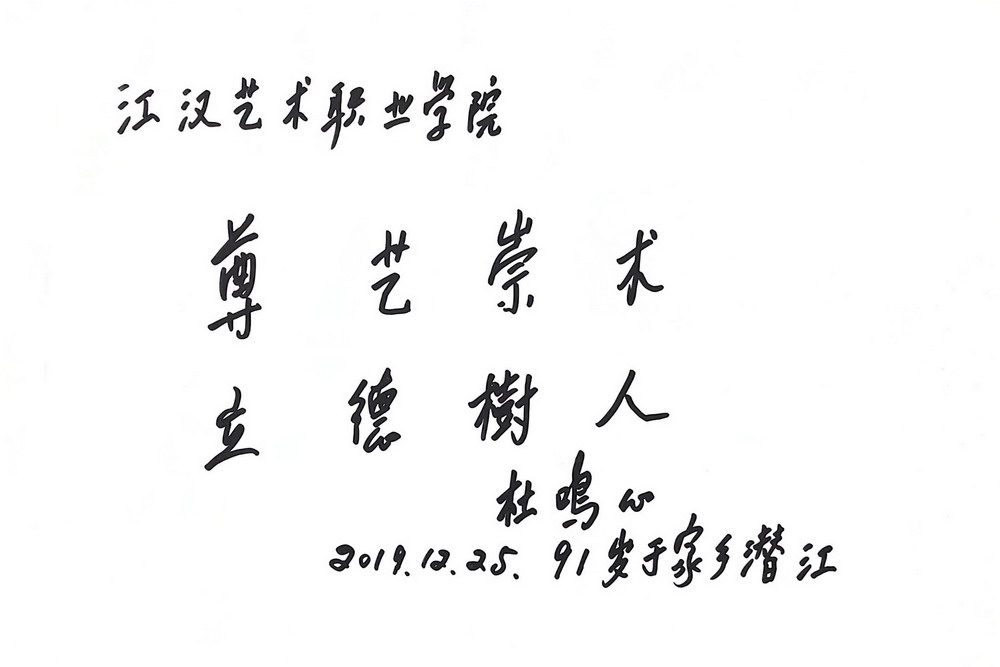 江汉艺术职业学院
尊艺崇术
立德樹人
杜鸣心
2019.12.25. 91岁于家乡潜江